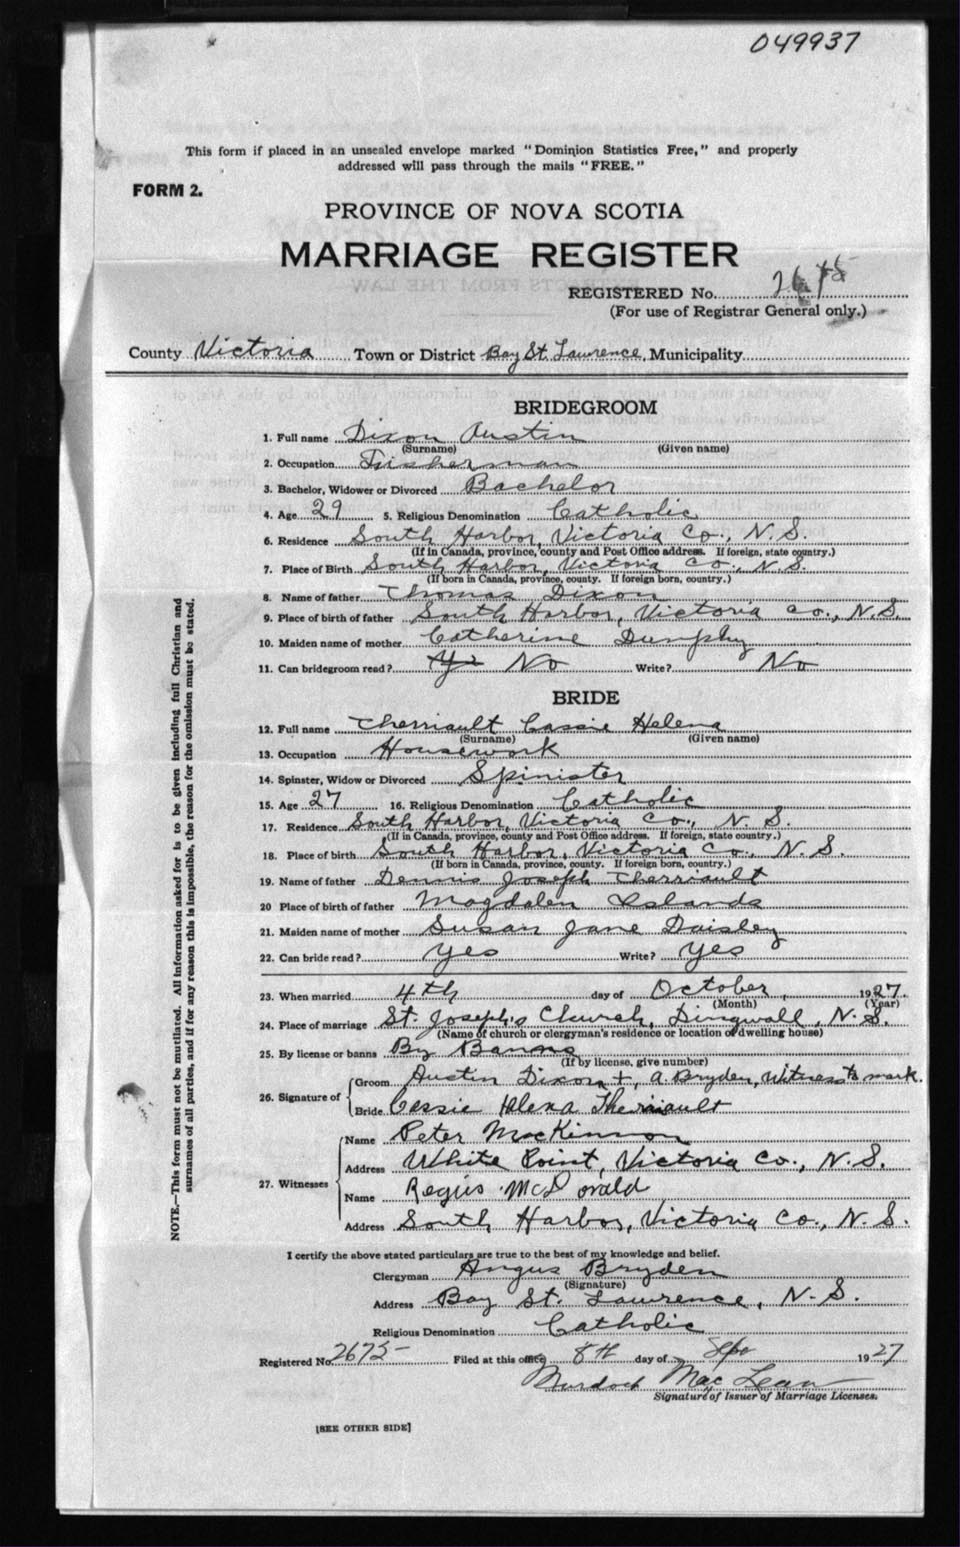 049937
This form if placed in an unsealed envelope marked "Dominion Statistics Free," and properly
addressed will pass through the mails "FREE."
FORM 2.
PROVINCE OF NOVA SCOTIA
MARRIAGE REGISTER
REGISTERED No.
(For use of Registrar General only.)
County Victoria Town or District Bay St. Lawrence, Municipality
BRIDEGROOM
1. Full name Dixon Austin
(Surname) (Given name)
2. Occupation Fisherman
3. Bachelor, Widower or Divorced Bachelor
4. Age 29 5. Religious Denomination Catholic
6. Residence South Harbor, Victoria Co., N.S.
(If in Canada, province, county and Post Office address. If foreign, state country.)
7. Place of Birth South Harbor, Victoria Co., N.S.
(If born in Canada, province, county. If foreign born, country.)
8. Name of father Thomas Dixon
9. Place of birth of father South Harbor, Victoria Co., N.S.
10. Maiden name of mother Catherine Dunphy
11. Can bridegroom read? No Write? No
BRIDE
12. Full name Therriault Cassie Helena
(Surname) (Given name)
13. Occupation Housework
14. Spinster, Widow or Divorced Spinister
15. Age 27 16. Religious Denomination Catholic
17. Residence South Harbor, Victoria Co., N.S.
(If in Canada, province, county and Post Office address. If foreign, state country.)
18. Place of birth South Harbor, Victoria Co., N.S.
(If born in Canada, province, county. If foreign born, country.)
19. Name of father Dennis Joseph Therriault
20 Place of birth of father Magdalen Islands
21. Maiden name of mother Susan Jane Daisley
22. Can bride read? Yes Write? Yes
23. When married 4th day of October, 1927.
(Month) (Year)
24. Place of marriage St. Joseph's Church, Dingwall, N.S.
(Name of church or clergyman's residence or location of dwelling house)
25. By license or banns By Banns
(If by license, give number)
26. Signature of
Groom Austin Dixon +, A. Bryden, Witness to mark.
Bride Cassie Helena Therriault
27. Witnesses
Name Peter MacKinnon
Address White Point, Victoria Co., N.S.
Name Regus McDonald
Address South Harbor, Victoria Co., N.S.
I certify the above stated particulars are true to the best of my knowledge and belief.
Clergyman Angus Bryden
(Signature)
Address Bay St. Lawrence, N.S.
Religious Denomination Catholic
Registered No. 2675 Filed at this office 8th day of 1927
Murdoch MacLean
Signature of Issuer of Marriage Licenses.
[SEE OTHER SIDE]
NOTE.—This form must not be mutilated. All information asked for is to be given including full Christian and
surnames of all parties, and if for any reason this is impossible, the reason for the omission must be stated.